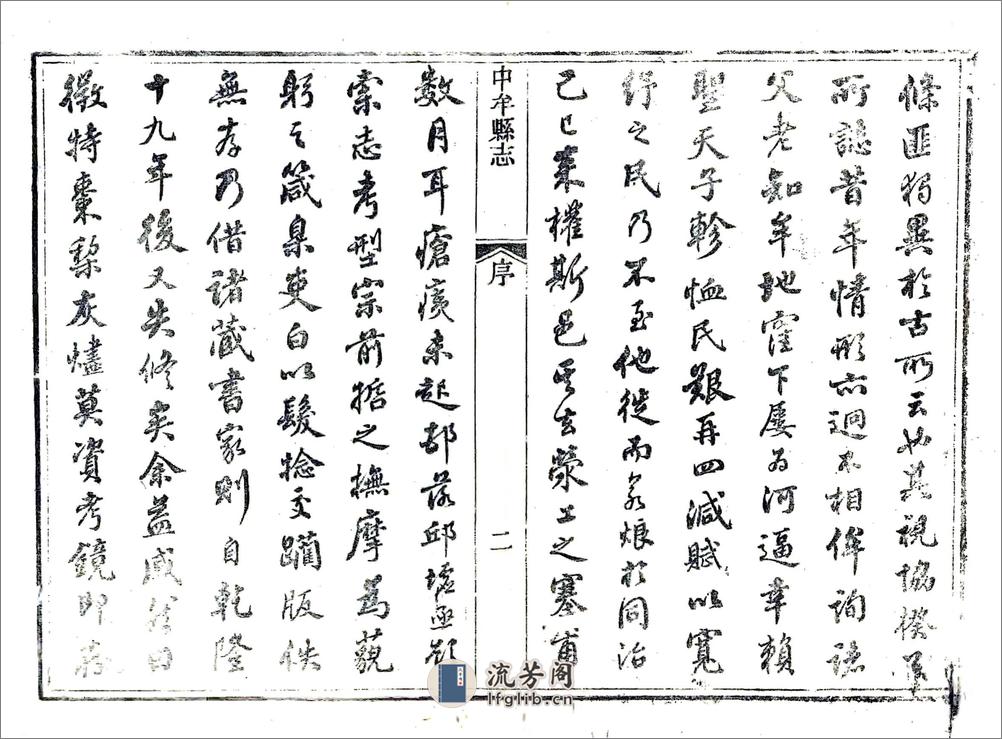 條匪獨異於古所云也其視協揆
所誌昔年情形亦迥不相侔詢諸
父老知牟地窪下屢為河逼幸賴
聖天子軫恤民艱再四減賦以寬
行之民乃不至他徙而 於同治
己巳來權斯邑 去滎工之塞甫
數月耳瘡痍未起村落邱墟亟欲
索志考型宗前 之撫摩為藐
躬之箴臬吏白以髮捻交躪版佚
無存乃借諸藏書家則自乾隆
十九年後又失修矣余益感
徵特棗梨灰燼莫資考鏡即
中牟縣志
序
二
流芳阁
lfglib.cn